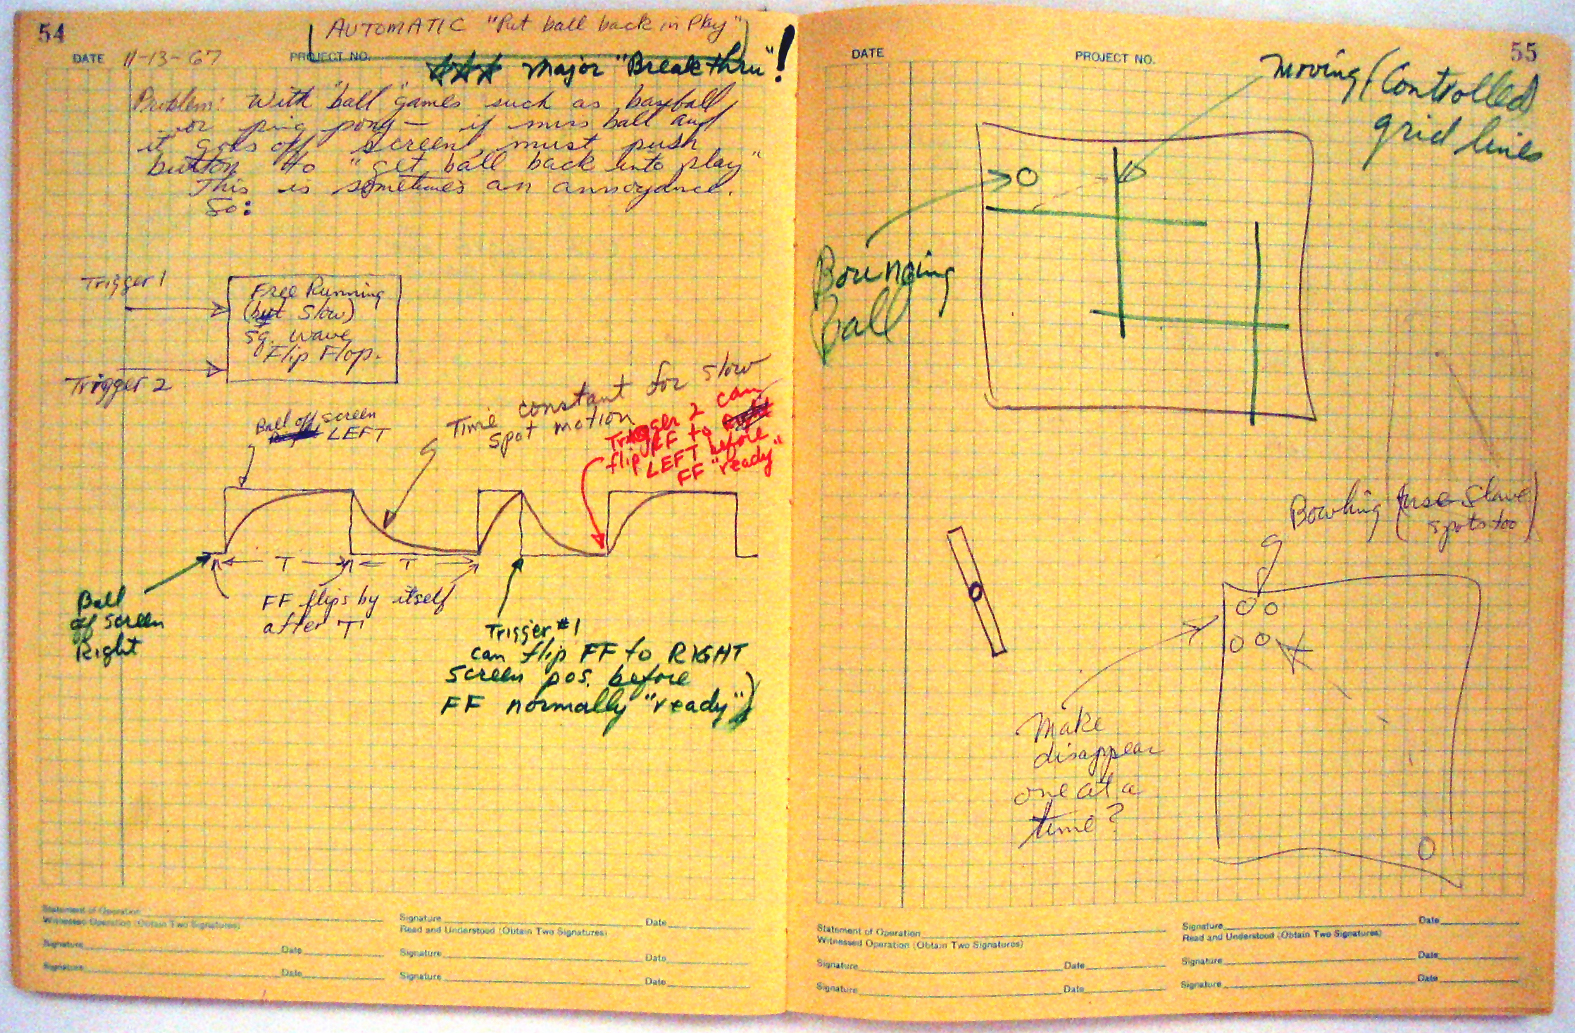 54
AUTOMATIC "Put ball back in Play"
DATE 11-13-67 PROJECT NO.
Major "Break thru"!
Problem: With "ball" games such as baseball
or ping pong — if miss ball and
it goes off screen, must push
button to "get ball back into play"
This is sometimes an annoyance.
So:
Trigger 1
Trigger 2
Free Running
(but slow)
sq. wave
Flip Flop.
Ball off screen
LEFT
Time constant for slow
spot motion
Trigger 2 can
flip FF to
LEFT before
FF "ready"
T T
Ball
off screen
Right
FF flips by itself
after T
Trigger #1
can flip FF to RIGHT
screen pos. before
FF normally "ready")
Statement of Operation
Witnessed Operation (Obtain Two Signatures)
Signature Date
Signature Date
Signature Date
Read and Understood (Obtain Two Signatures)
Signature Date
Signature Date
55
DATE PROJECT NO.
Moving/Controlled
grid lines
Bouncing
Ball
Bowling (use slave
spots too)
Make
disappear
one at a
time?
Statement of Operation
Witnessed Operation (Obtain Two Signatures)
Signature Date
Signature Date
Signature Date
Read and Understood (Obtain Two Signatures)
Signature Date
Signature Date